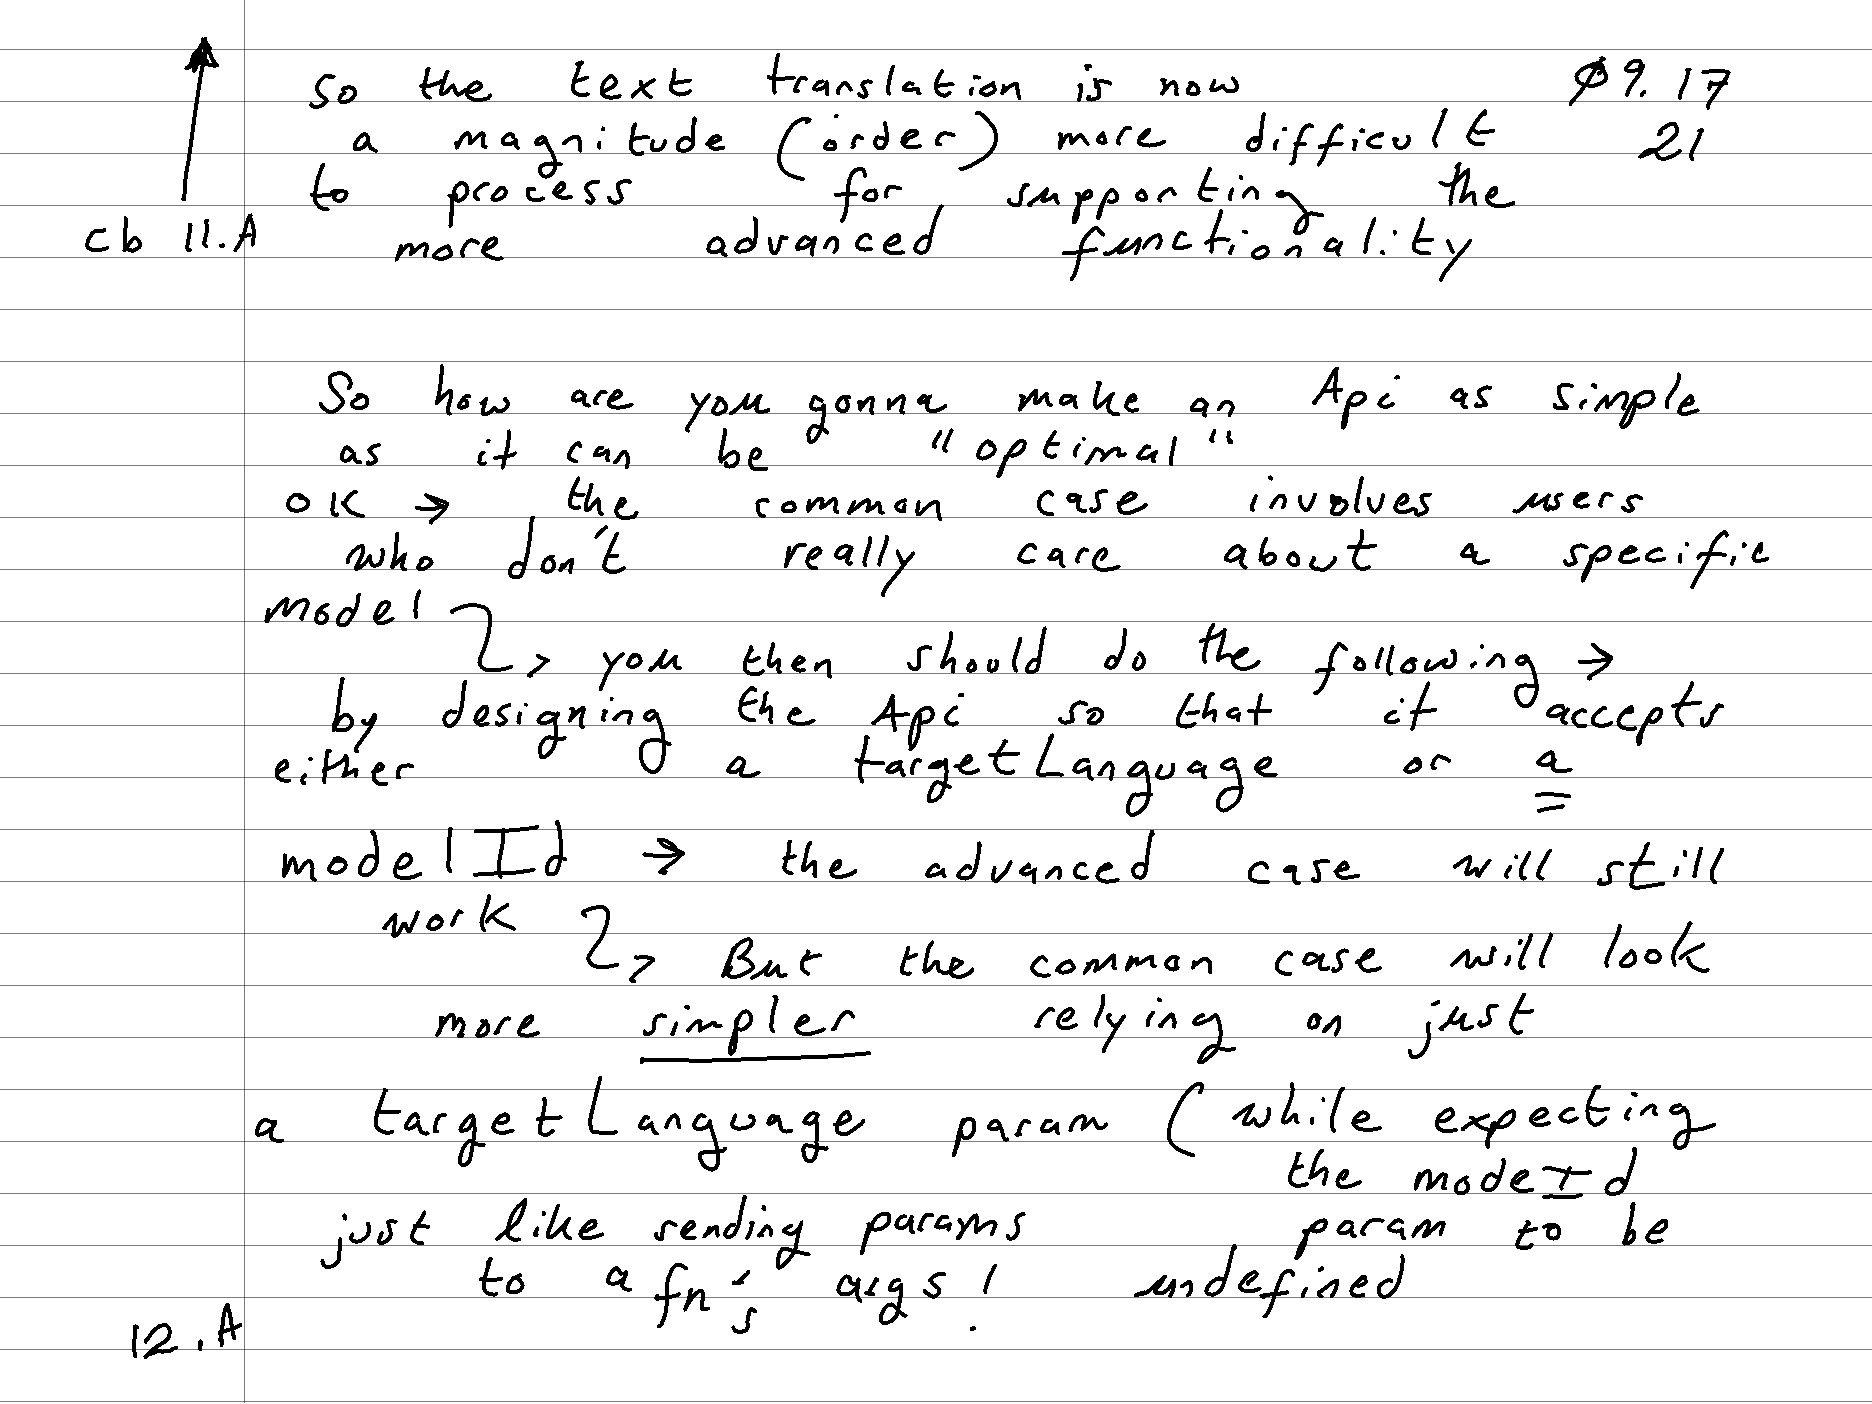 so the text translation is now
ø9.17
a magnitude (order) more difficult
21
to process for supporting the
cb 11.A
more advanced functionality
So how are you gonna make an Api as simple
as it can be "optimal"
OK → the common case involves users
who don't really care about a specific
model
> you then should do the following →
by designing the Api so that it accepts
either a targetLanguage or a
modelId → the advanced case will still
work
> But the common case will look
more simpler relying on just
a targetLanguage param (while expecting
the modeId
just like sending params
param to be
to a fn's args!
undefined
12.A